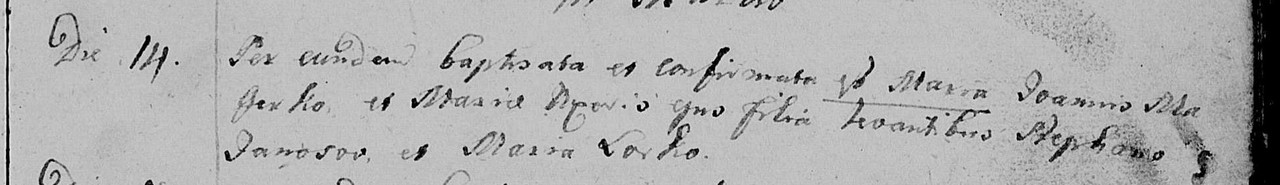 Die 14. Per eundem baptisata et confirmata est Maria Joannis Ma
gerko, et Mariæ Uxoris ejus filia levantibus Stephano
Janosov, et Maria Lorko.